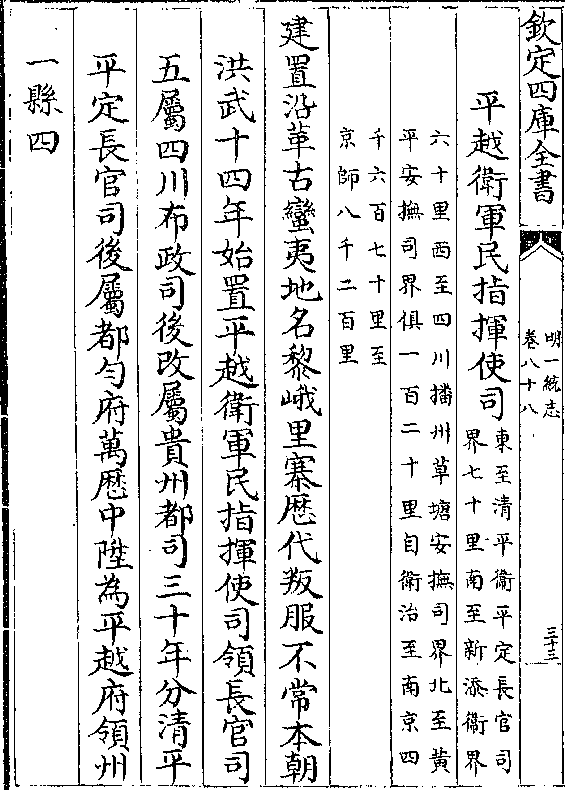 欽定四庫全書
明一統志
卷八十八
三十三
平越衛軍民指揮使司
東至清平衛平定長官司
界七十里南至新添衛界
六十里西至四川播州草塘安撫司界北至黄
平安撫司界俱一百二十里自衛治至南京四
千六百七十里至
京師八千二百里
建置沿革古蠻夷地名黎峨里寨歴代叛服不常本朝
洪武十四年始置平越衛軍民指揮使司領長官司
五屬四川布政司後改屬貴州都司三十年分清平
平定長官司後屬都匀府萬歴中陞為平越府領州
一縣四